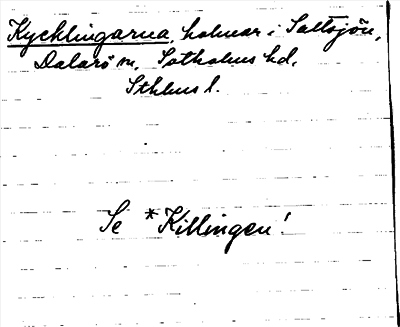 Kycklingarna, holmar i Saltsjön,
Dalarö sn, Sotholms hd,
Sthlms l.
Se *Killingen!